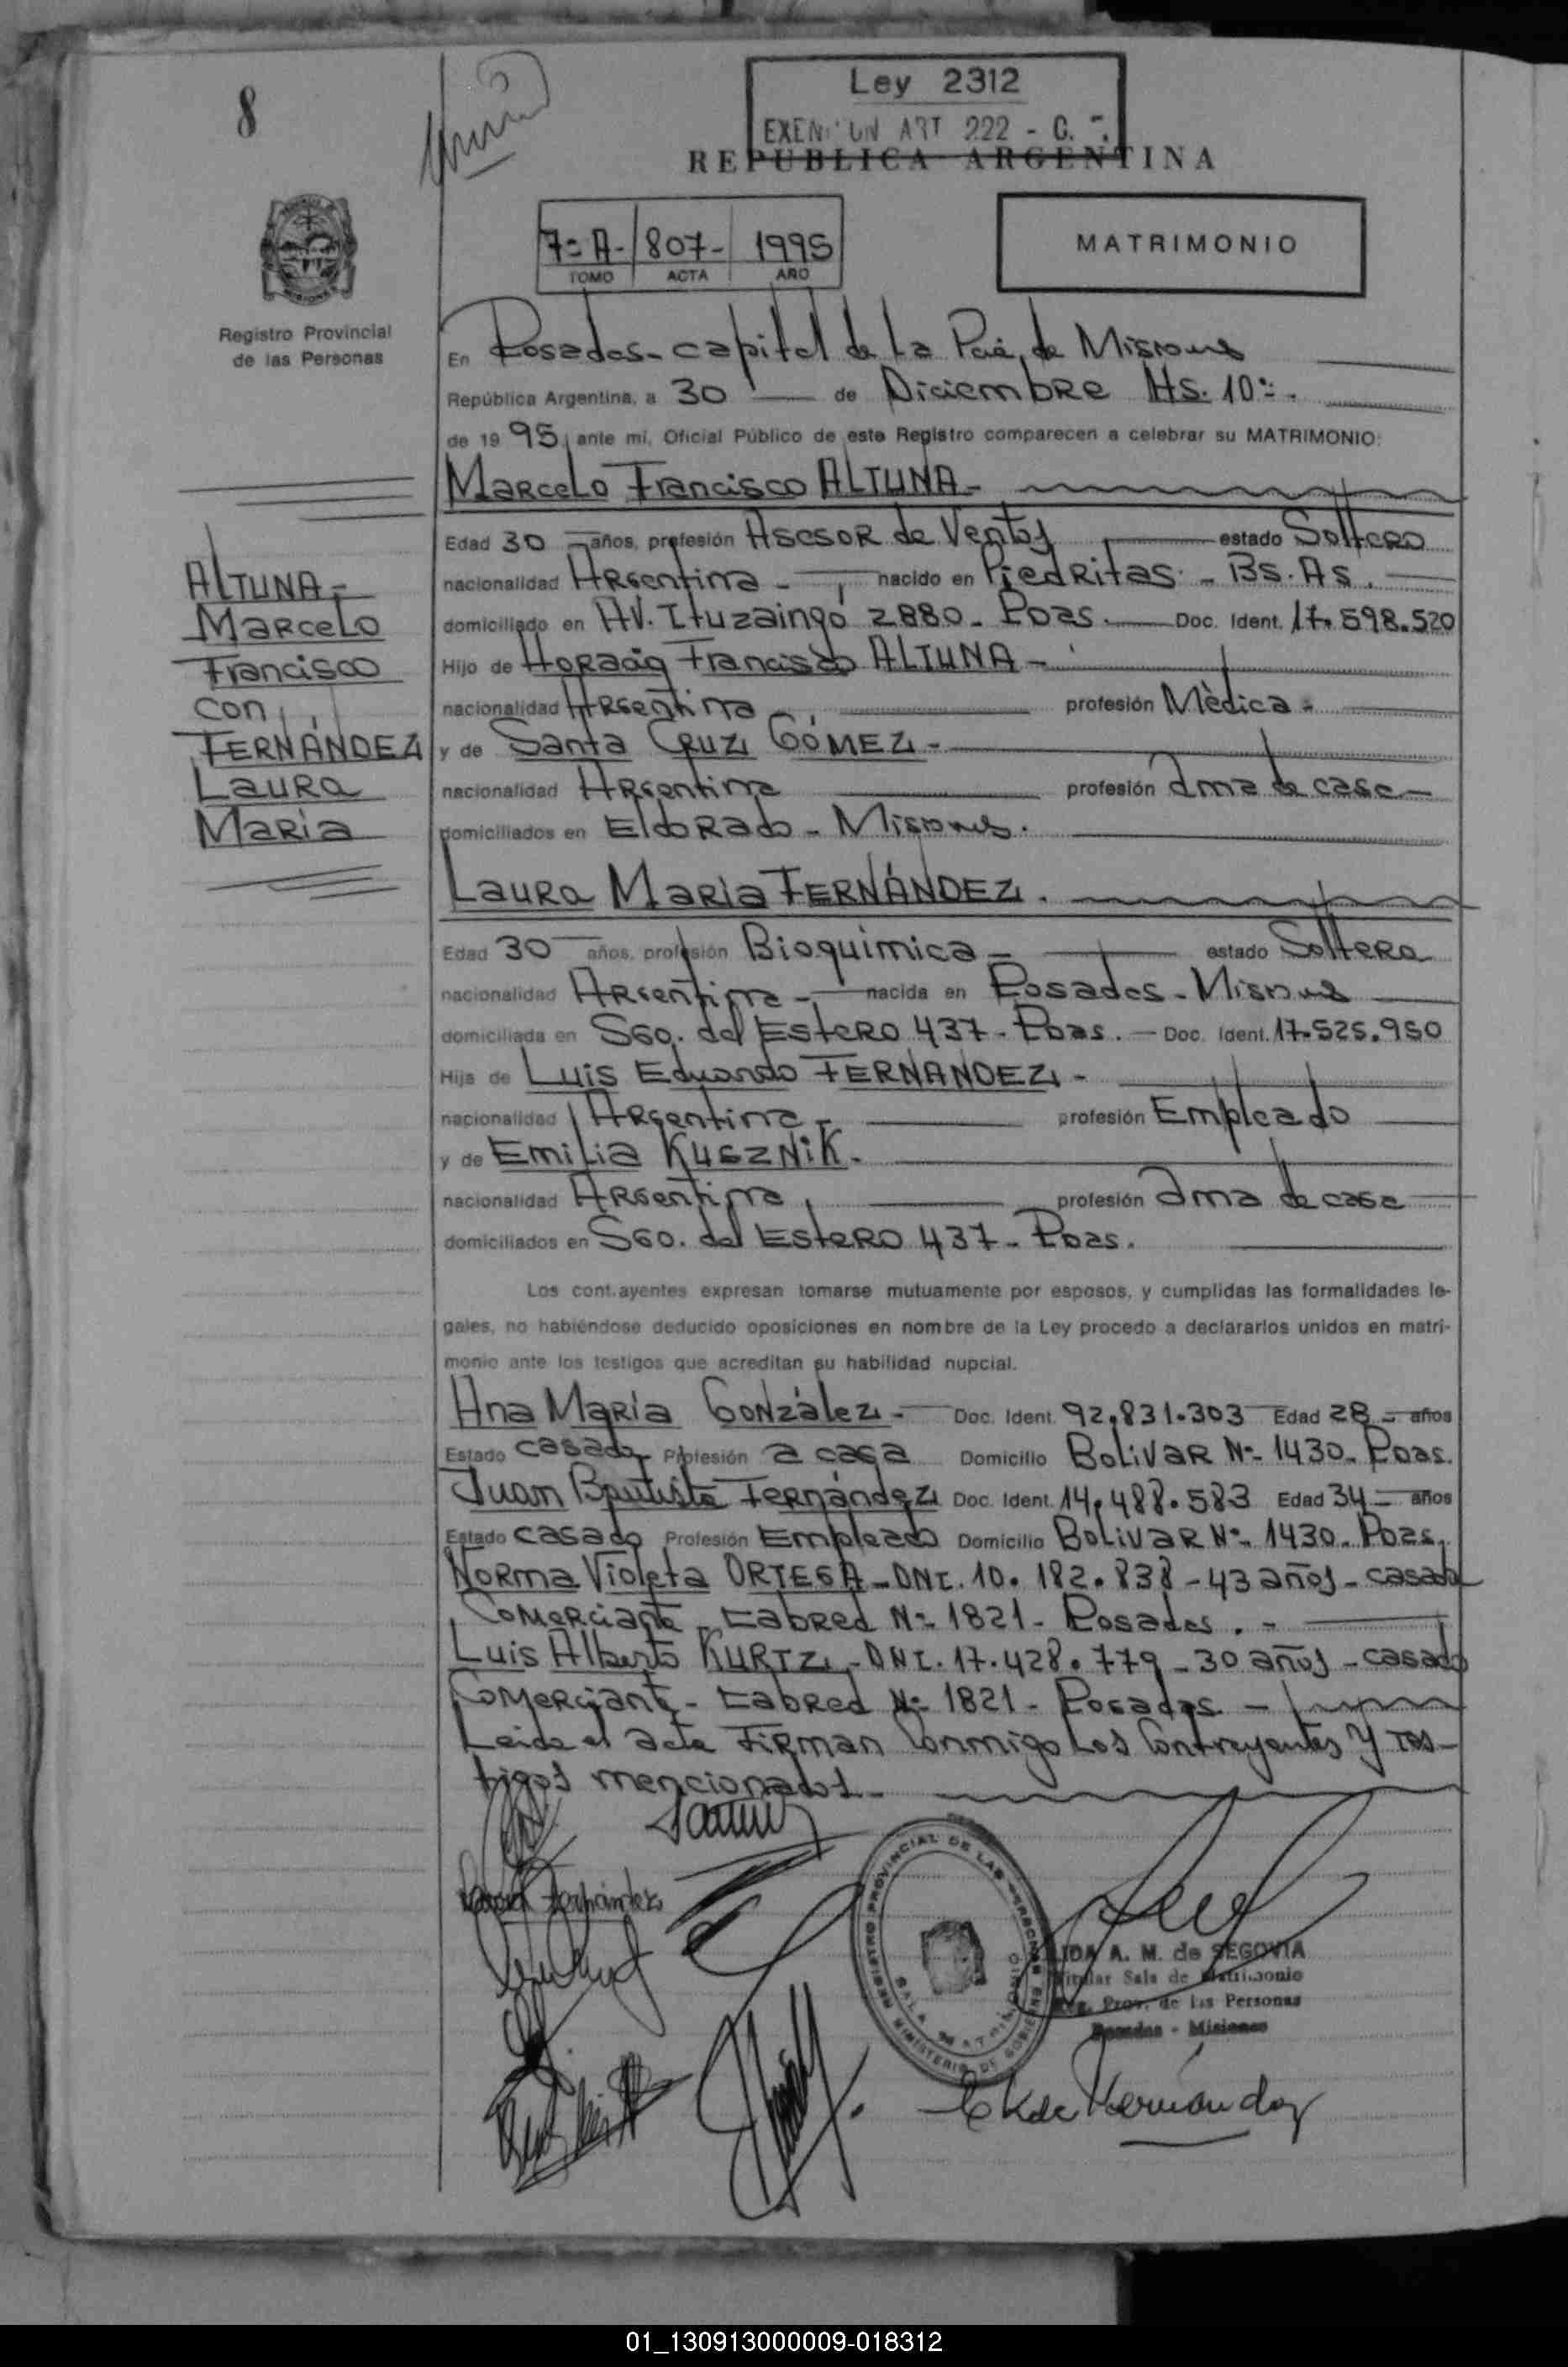 8
Ley 2312
ART 222 - C.
REPUBLICA ARGENTINA
7=A- 807- 1995
TOMO ACTA AÑO
MATRIMONIO
Registro Provincial
de las Personas
En Posadas - capital de La Pcia, de Misiones
República Argentina, a 30 de Diciembre Hs. 10:-.
de 1995, ante mí, Oficial Público de este Registro comparecen a celebrar su MATRIMONIO:
Marcelo Francisco ALTUNA -
Edad 30 años, profesión Asesor de Ventas estado Soltero
nacionalidad Argentina - nacido en Piedritas - Bs. As.
domiciliado en AV. Ituzaingó 2880 - Pdas. Doc. Ident. 17.598.520
Hijo de Horacio Francisco ALTUNA -
nacionalidad Argentina profesión Mèdica -
y de Santa CRUZ GÓMEZ -
nacionalidad Argentina profesión Ama de casa -
domiciliados en Eldorado - Misiones.
ALTUNA -
Marcelo
Francisco
con
FERNÁNDEZ
Laura
María
Laura María FERNÁNDEZ.
Edad 30 años, profesión Bioquímica - estado Soltera
nacionalidad Argentina - nacida en Posadas - Misiones
domiciliada en Sgo. del Estero 437 - Pdas. - Doc. Ident. 17.525.950
Hija de Luis Eduardo FERNANDEZ -
nacionalidad Argentina - profesión Empleado
y de Emilia KUSZNIK.
nacionalidad Argentina, profesión Ama de casa
domiciliados en Sgo. del Estero 437 - Pdas.
Los contrayentes expresan tomarse mutuamente por esposos, y cumplidas las formalidades le-
gales, no habiéndose deducido oposiciones en nombre de la Ley procedo a declararlos unidos en matri-
monio ante los testigos que acreditan su habilidad nupcial.
Ana María González - Doc. Ident. 92.831.303 Edad 28 - años
Estado casada Profesión a casa Domicilio Bolivar Nº 1430 - Pdas.
Juan Bautista Fernández Doc. Ident. 14.488.583 Edad 34 - años
Estado casado Profesión Empleado Domicilio Bolivar Nº 1430 - Pdas.
Norma Violeta ORTEGA - DNI. 10.182.838 - 43 años - casada
Comerciante - Cabred Nº 1821 - Posadas. -
Luis Alberto KURTZ - DNI. 17.428.779 - 30 años - casado
Comerciante - Cabred Nº 1821 - Posadas. -
Leida el acta Firman Conmigo Los Contrayentes y Tes-
tigos mencionados -
REGISTRO PROVINCIAL DE LAS PERSONAS
MINISTERIO DE GOBIERNO
SALA MATRIMONIO
LIDA A. M. de SEGOVIA
Titular Sala de Matrimonio
Reg. Prov. de las Personas
Posadas - Misiones
01_130913000009-018312